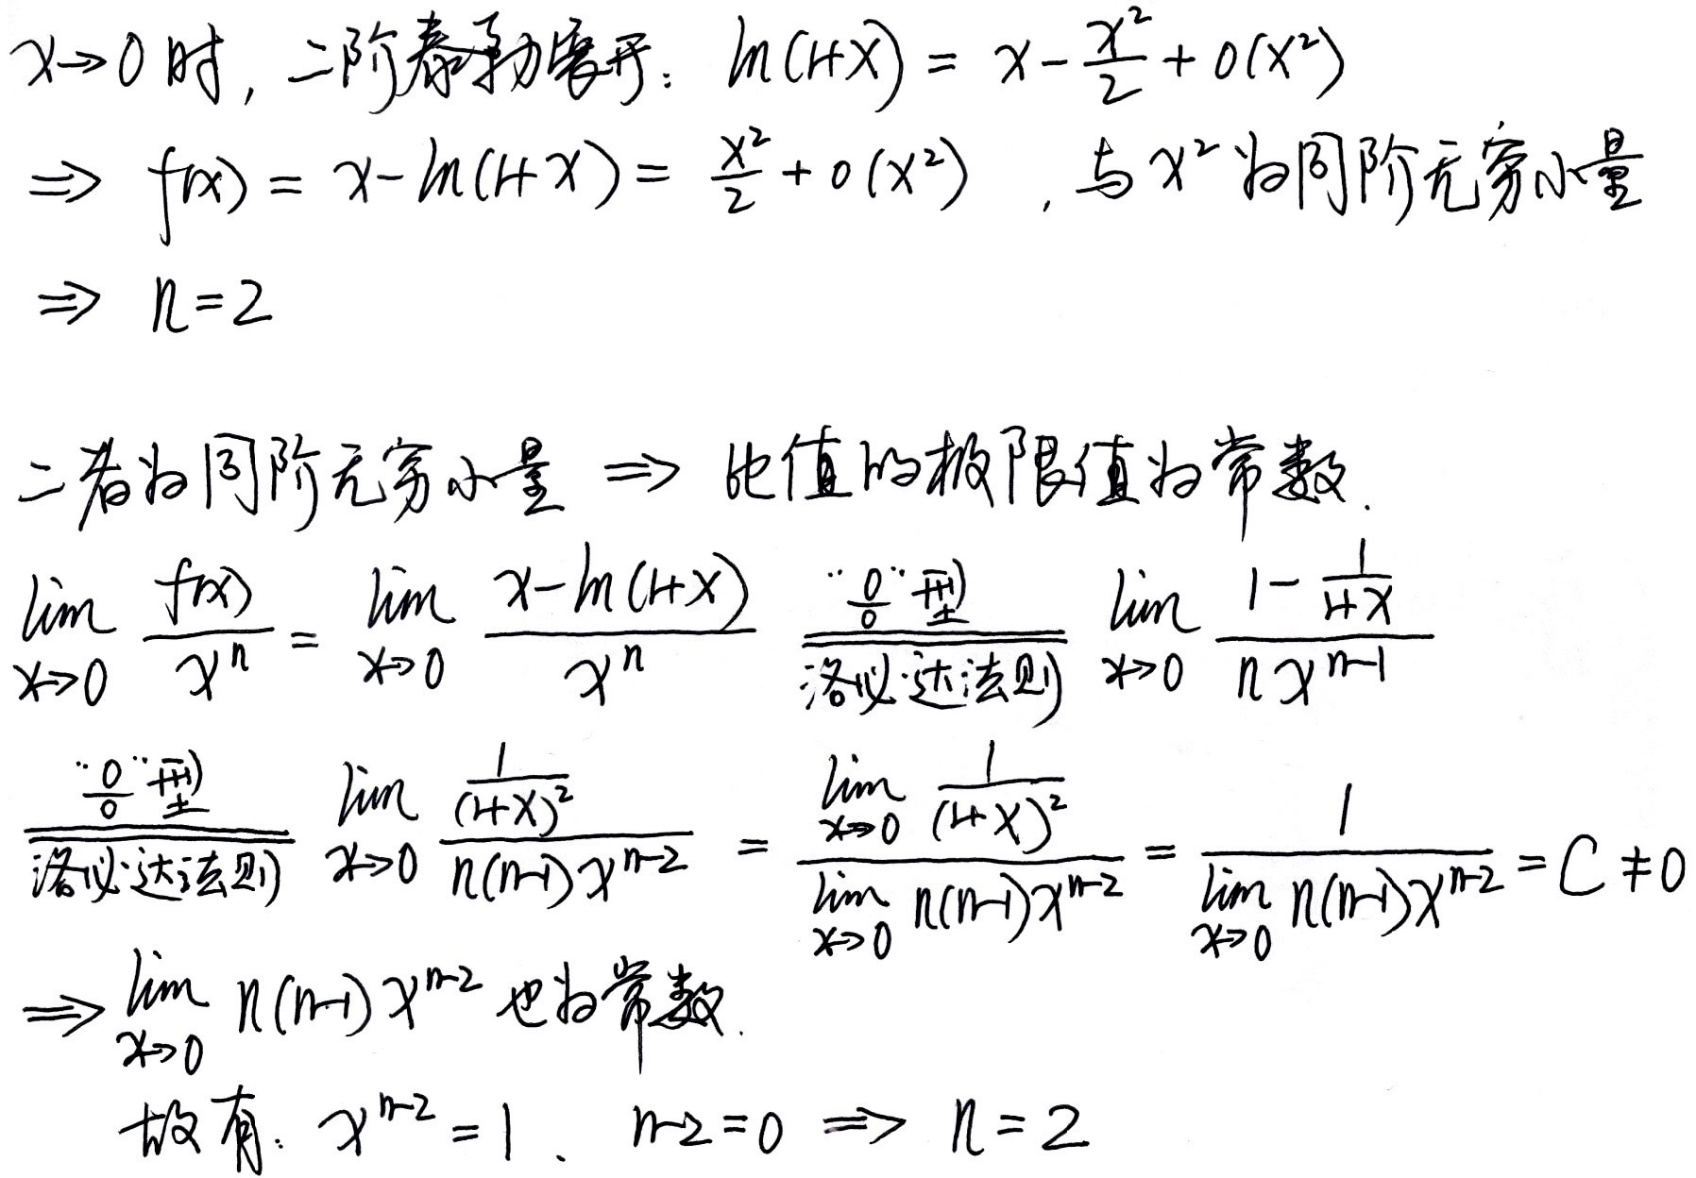 x→0时, 二阶泰勒展开: ln(1+x) = x - x²/2 + o(x²)
⇒ f(x) = x - ln(1+x) = x²/2 + o(x²) , 与x²为同阶无穷小量
⇒ n=2
二者为同阶无穷小量 ⇒ 比值的极限值为常数.
lim_{x→0} f(x)/x^n = lim_{x→0} (x-ln(1+x))/x^n ="0/0"型 洛必达法则= lim_{x→0} (1 - 1/(1+x))/(n x^{n-1})
="0/0"型 洛必达法则= lim_{x→0} (1/(1+x)²)/(n(n-1)x^{n-2}) = (lim_{x→0} 1/(1+x)²)/(lim_{x→0} n(n-1)x^{n-2}) = 1/(lim_{x→0} n(n-1)x^{n-2}) = C ≠ 0
⇒ lim_{x→0} n(n-1)x^{n-2} 也为常数.
故有: x^{n-2} = 1 . n-2=0 ⇒ n=2